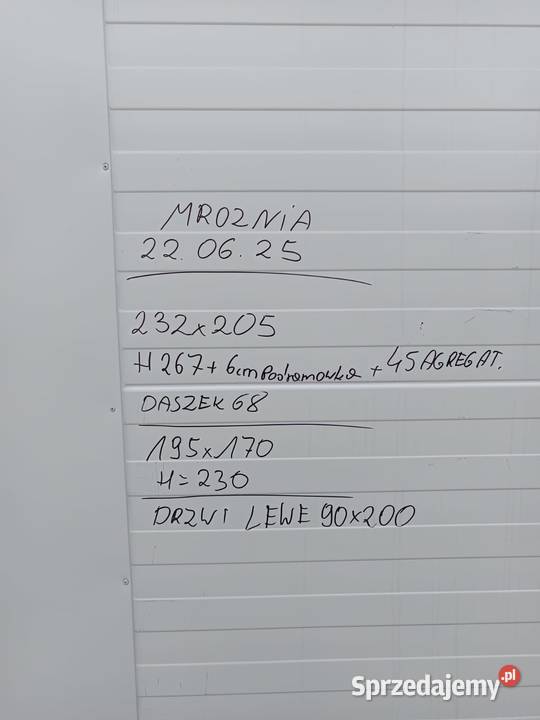 MROZNiA
22.06.25
232x205
H 267 + 6cm Podramowka + 45 AGREGAT.
DASZEK 68
195x170
H = 230
DRZWI LEWE 90x200
Sprzedajemy.pl